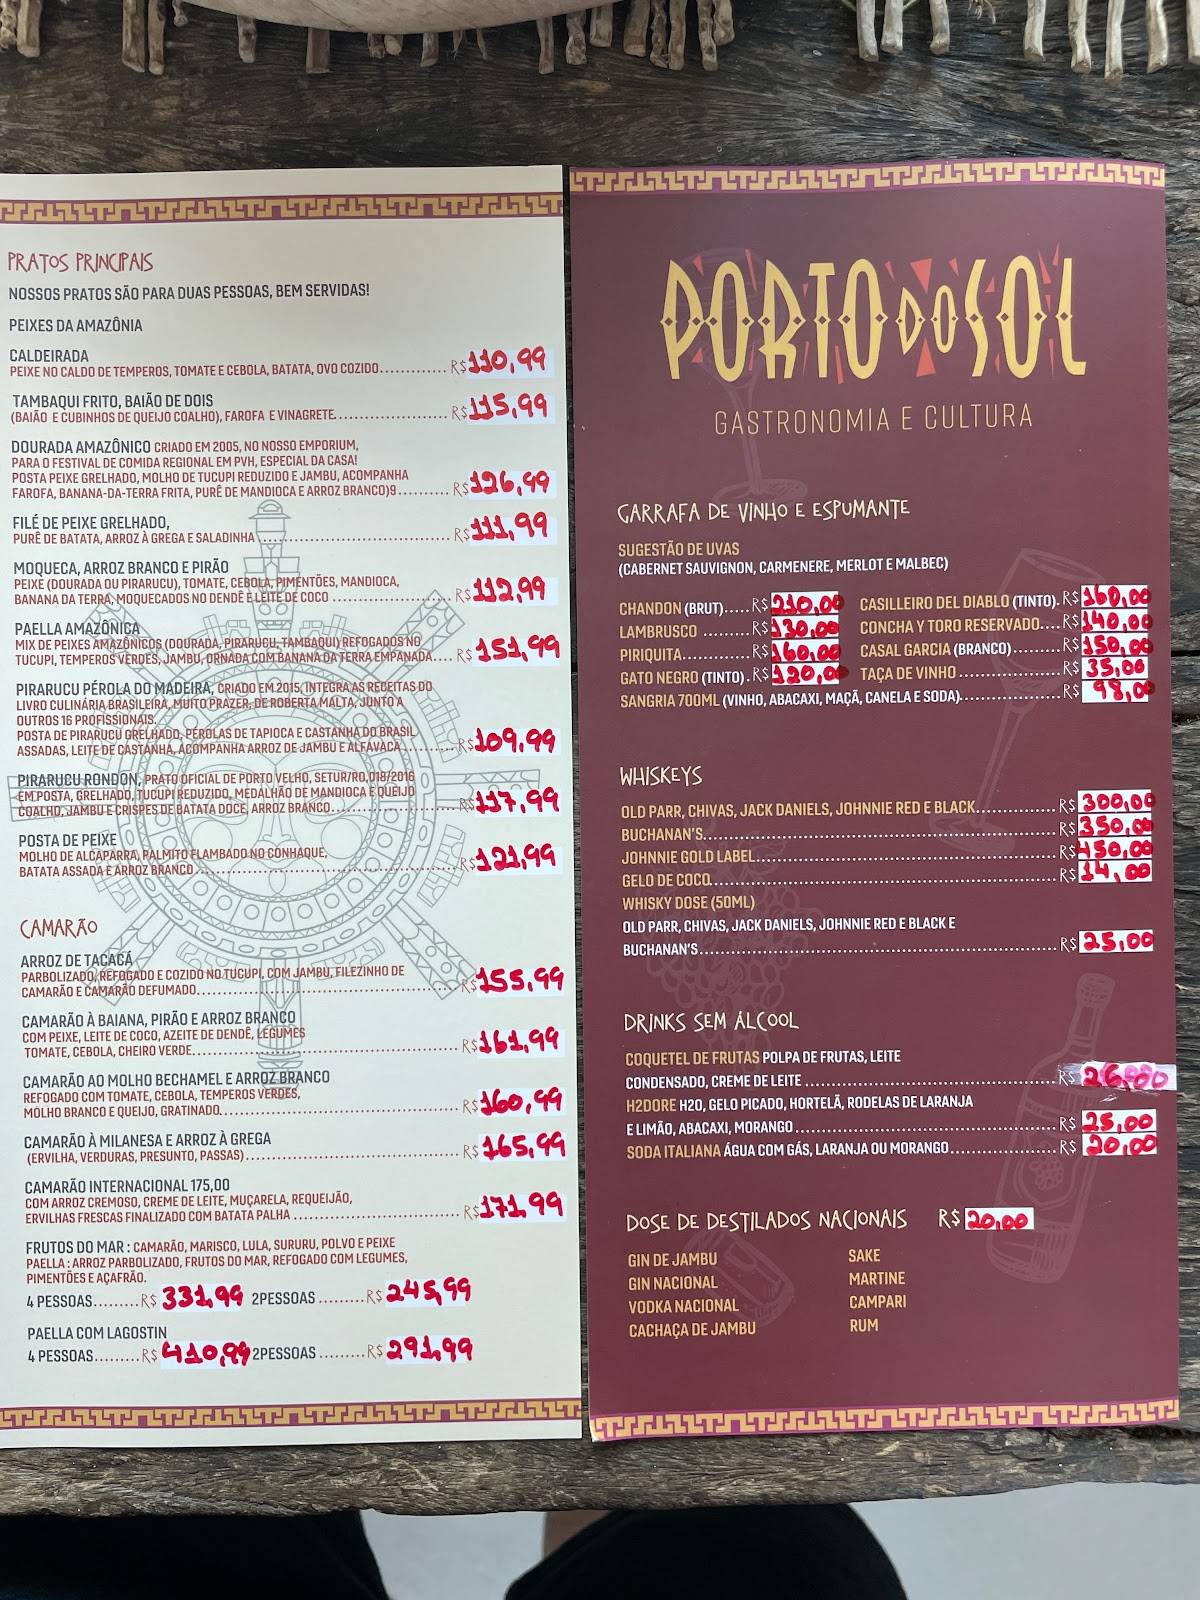 PRATOS PRINCIPAIS
NOSSOS PRATOS SÃO PARA DUAS PESSOAS, BEM SERVIDAS!
PEIXES DA AMAZÔNIA
CALDEIRADA
PEIXE NO CALDO DE TEMPEROS, TOMATE E CEBOLA, BATATA, OVO COZIDO............. R$ 110,99
TAMBAQUI FRITO, BAIÃO DE DOIS
(BAIÃO E CUBINHOS DE QUEIJO COALHO), FAROFA E VINAGRETE..................... R$ 115,99
DOURADA AMAZÔNICO CRIADO EM 2005, NO NOSSO EMPORIUM,
PARA O FESTIVAL DE COMIDA REGIONAL EM PVH, ESPECIAL DA CASA!
POSTA PEIXE GRELHADO, MOLHO DE TUCUPI REDUZIDO E JAMBU, ACOMPANHA
FAROFA, BANANA-DA-TERRA FRITA, PURÊ DE MANDIOCA E ARROZ BRANCO)9.......... R$ 126,99
FILÉ DE PEIXE GRELHADO,
PURÊ DE BATATA, ARROZ À GREGA E SALADINHA .................................... R$ 111,99
MOQUECA, ARROZ BRANCO E PIRÃO
PEIXE (DOURADA OU PIRARUCU), TOMATE, CEBOLA, PIMENTÕES, MANDIOCA,
BANANA DA TERRA, MOQUECADOS NO DENDÊ E LEITE DE COCO ...................... R$ 112,99
PAELLA AMAZÔNICA
MIX DE PEIXES AMAZÔNICOS (DOURADA, PIRARUCU, TAMBAQUI) REFOGADOS NO
TUCUPI, TEMPEROS VERDES, JAMBU, ORNADA COM BANANA DA TERRA EMPANADA.... R$ 151,99
PIRARUCU PÉROLA DO MADEIRA, CRIADO EM 2015, INTEGRA AS RECEITAS DO
LIVRO CULINÁRIA BRASILEIRA, MUITO PRAZER, DE ROBERTA MALTA, JUNTO A
OUTROS 16 PROFISSIONAIS.
POSTA DE PIRARUCU GRELHADO, PÉROLAS DE TAPIOCA E CASTANHA DO BRASIL
ASSADAS, LEITE DE CASTANHA, ACOMPANHA ARROZ DE JAMBU E ALFAVACA.......... R$ 109,99
PIRARUCU RONDON, PRATO OFICIAL DE PORTO VELHO, SETUR/RO,018/2016
EM POSTA, GRELHADO, TUCUPI REDUZIDO, MEDALHÃO DE MANDIOCA E QUEIJO
COALHO, JAMBU E CRISPES DE BATATA DOCE, ARROZ BRANCO...................... R$ 117,99
POSTA DE PEIXE
MOLHO DE ALCAPARRA, PALMITO FLAMBADO NO CONHAQUE,
BATATA ASSADA E ARROZ BRANCO.................................................. R$ 121,99
CAMARÃO
ARROZ DE TACACÁ
PARBOLIZADO, REFOGADO E COZIDO NO TUCUPI, COM JAMBU, FILEZINHO DE
CAMARÃO E CAMARÃO DEFUMADO.................................................. R$ 155,99
CAMARÃO À BAIANA, PIRÃO E ARROZ BRANCO
COM PEIXE, LEITE DE COCO, AZEITE DE DENDÊ, LEGUMES
TOMATE, CEBOLA, CHEIRO VERDE.................................................. R$ 161,99
CAMARÃO AO MOLHO BECHAMEL E ARROZ BRANCO
REFOGADO COM TOMATE, CEBOLA, TEMPEROS VERDES,
MOLHO BRANCO E QUEIJO, GRATINADO............................................. R$ 160,99
CAMARÃO À MILANESA E ARROZ À GREGA
(ERVILHA, VERDURAS, PRESUNTO, PASSAS)........................................ R$ 165,99
CAMARÃO INTERNACIONAL 175,00
COM ARROZ CREMOSO, CREME DE LEITE, MUÇARELA, REQUEIJÃO,
ERVILHAS FRESCAS FINALIZADO COM BATATA PALHA ................................ R$ 171,99
FRUTOS DO MAR : CAMARÃO, MARISCO, LULA, SURURU, POLVO E PEIXE
PAELLA : ARROZ PARBOLIZADO, FRUTOS DO MAR, REFOGADO COM LEGUMES,
PIMENTÕES E AÇAFRÃO.
4 PESSOAS......... R$ 331,99 2PESSOAS ......... R$ 245,99
PAELLA COM LAGOSTIN
4 PESSOAS......... R$ 410,99 2PESSOAS ......... R$ 291,99
PORTO DO SOL
GASTRONOMIA E CULTURA
GARRAFA DE VINHO E ESPUMANTE
SUGESTÃO DE UVAS
(CABERNET SAUVIGNON, CARMENERE, MERLOT E MALBEC)
CHANDON (BRUT)..... R$ 210,00 CASILLEIRO DEL DIABLO (TINTO). R$ 160,00
LAMBRUSCO ......... R$ 130,00 CONCHA Y TORO RESERVADO.... R$ 140,00
PIRIQUITA............ R$ 160,00 CASAL GARCIA (BRANCO).......... R$ 150,00
GATO NEGRO (TINTO) . R$ 120,00 TAÇA DE VINHO .................... R$ 35,00
SANGRIA 700ML (VINHO, ABACAXI, MAÇÃ, CANELA E SODA).................... R$ 98,00
WHISKEYS
OLD PARR, CHIVAS, JACK DANIELS, JOHNNIE RED E BLACK............... R$ 300,00
BUCHANAN'S................................................................ R$ 350,00
JOHNNIE GOLD LABEL....................................................... R$ 450,00
GELO DE COCO.............................................................. R$ 14,00
WHISKY DOSE (50ML)
OLD PARR, CHIVAS, JACK DANIELS, JOHNNIE RED E BLACK E
BUCHANAN'S................................................................ R$ 25,00
DRINKS SEM ÁLCOOL
COQUETEL DE FRUTAS POLPA DE FRUTAS, LEITE
CONDENSADO, CREME DE LEITE .............................................. R$ 26,00
H2DORE H2O, GELO PICADO, HORTELÃ, RODELAS DE LARANJA
E LIMÃO, ABACAXI, MORANGO................................................ R$ 25,00
SODA ITALIANA ÁGUA COM GÁS, LARANJA OU MORANGO.................... R$ 20,00
DOSE DE DESTILADOS NACIONAIS R$ 20,00
GIN DE JAMBU SAKE
GIN NACIONAL MARTINE
VODKA NACIONAL CAMPARI
CACHAÇA DE JAMBU RUM